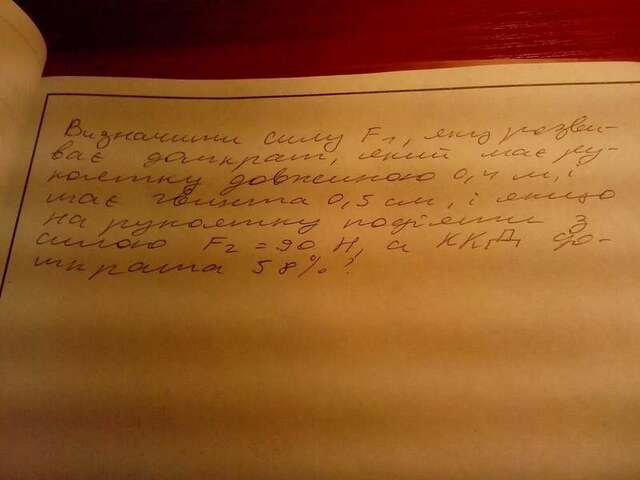 Визначити силу F₁, яку розви-
ває домкрат, який має ру-
коятку довжиною 0,4 м, і
має гвинта 0,5 см, і якщо
на рукоятку подіяти з
силою F₂ = 90 Н, а ККД до-
мкрата 58%?